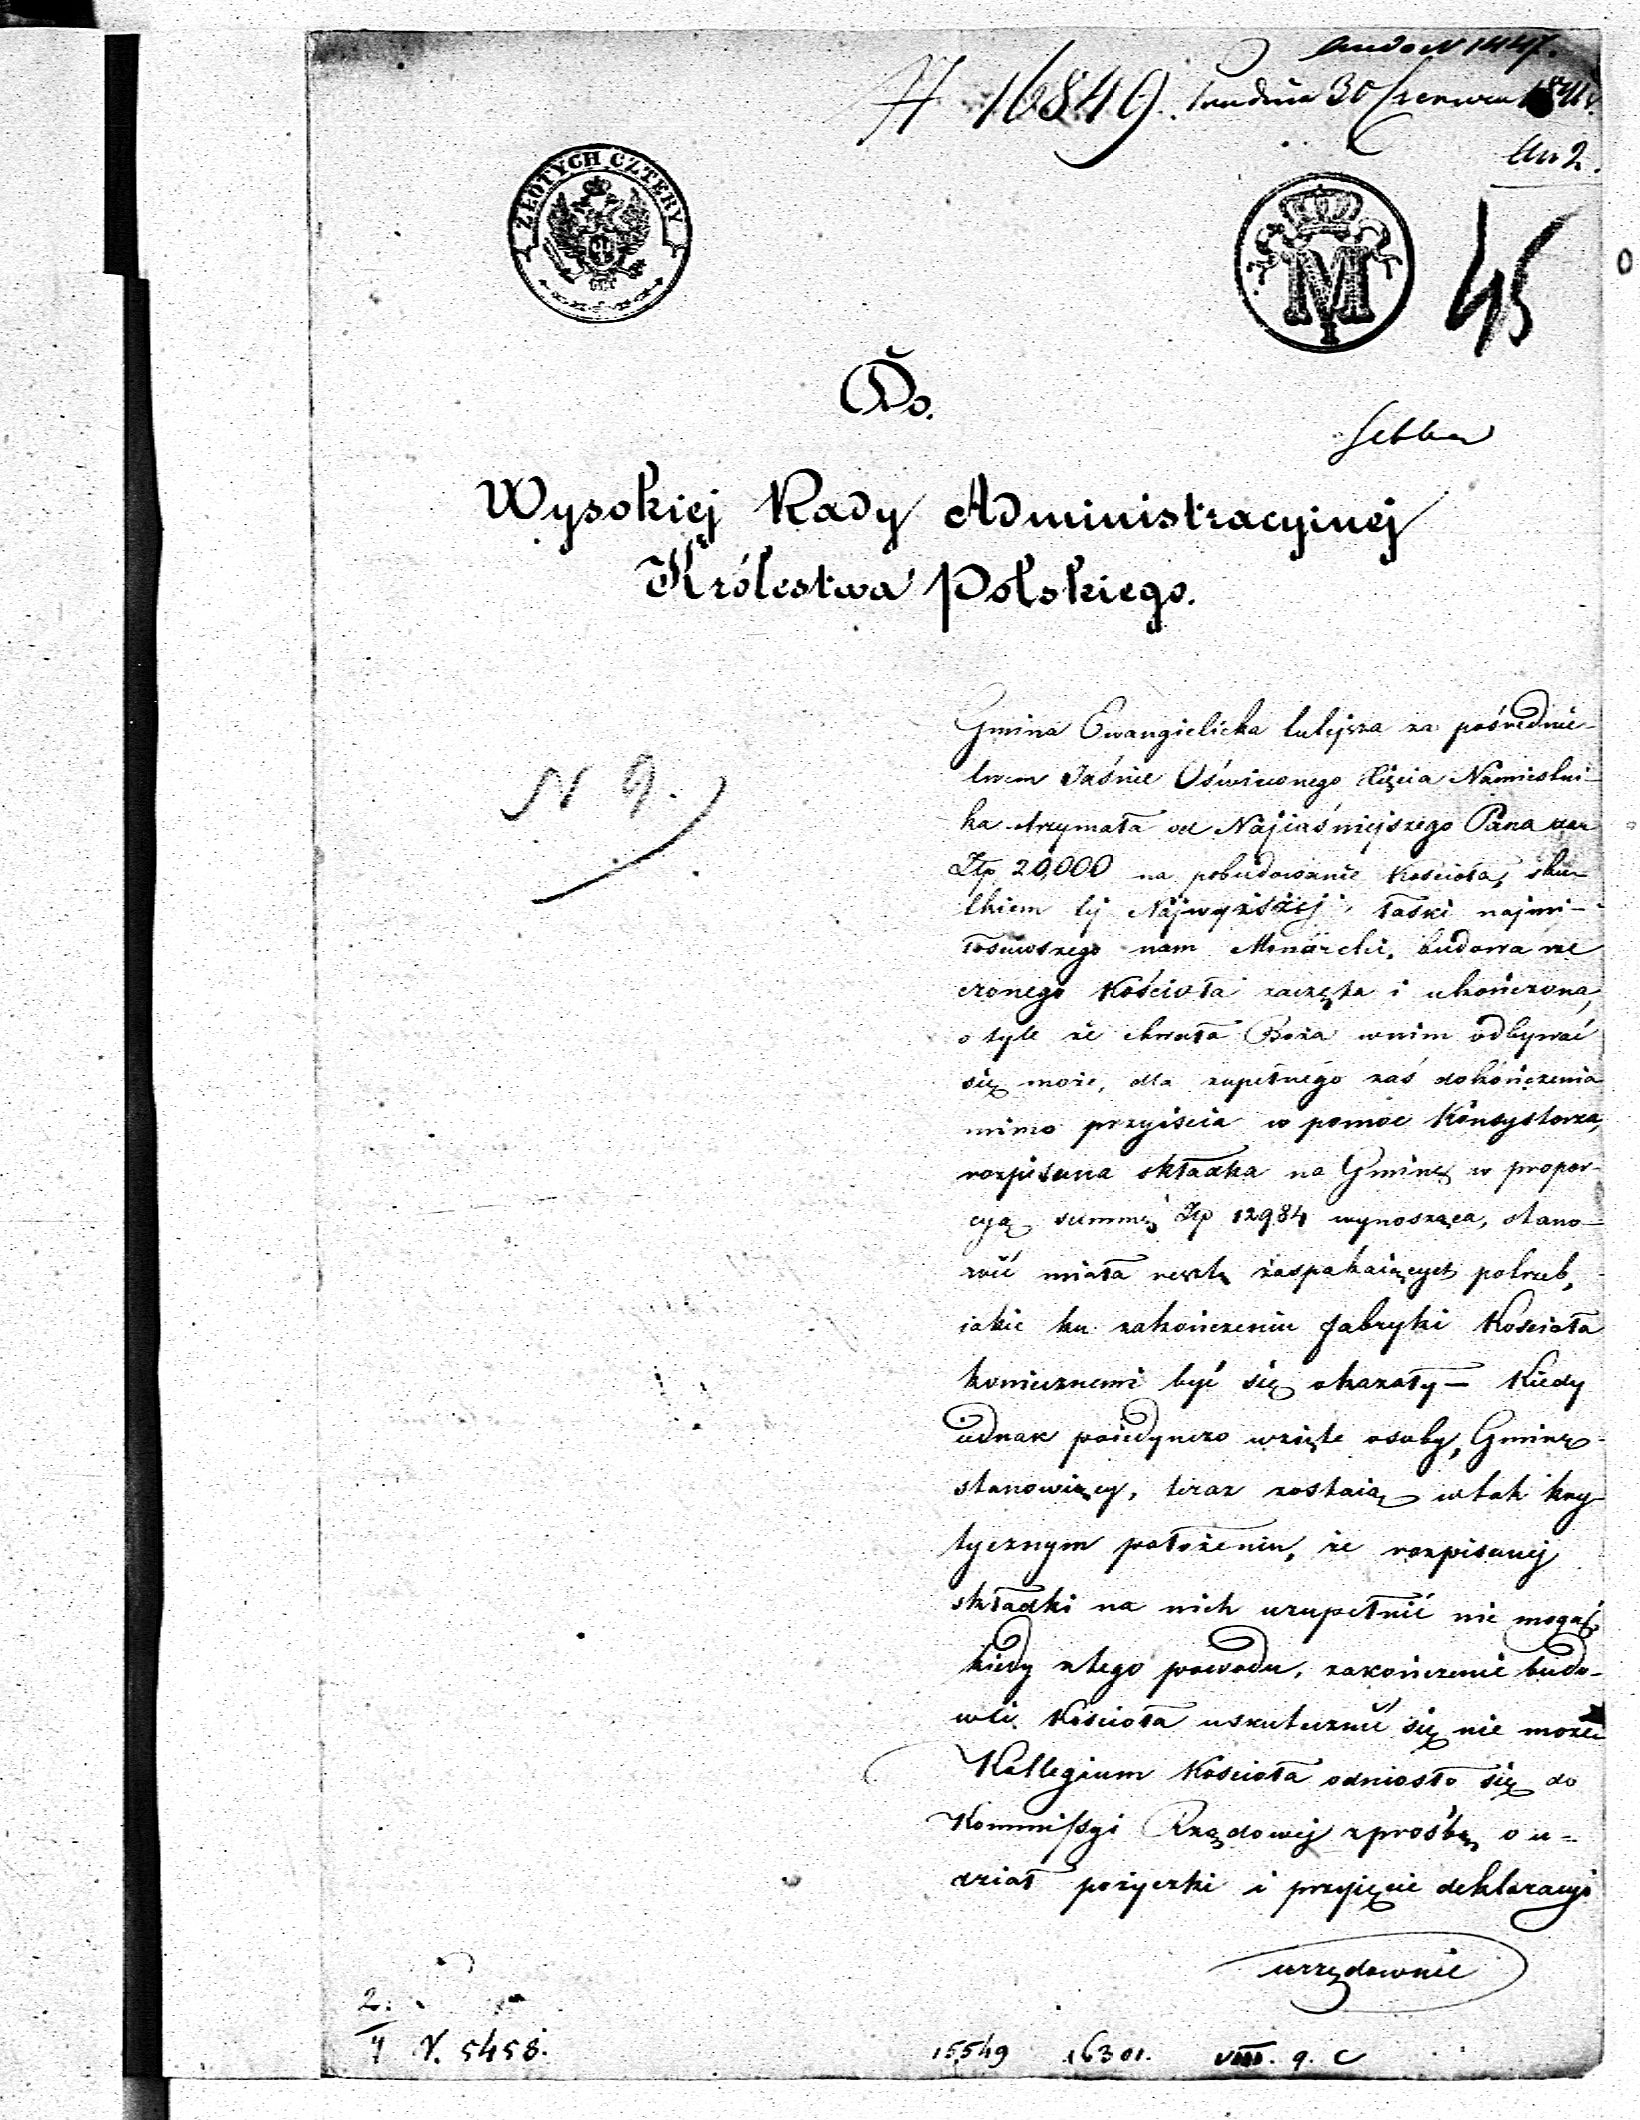 16849. 30 Czerwca
An 2.
ZŁOTYCH CZTERY
45
Do.
Wysokiej Rady Administracyinej
Królestwa Polskiego.
N 9.
Gmina Ewangielicka tutejsza za pośrednic-
twem Jaśnie Oświeconego Xięcia Namiestni-
ka otrzymała od Najiaśniejszego Pana
Złp 20,000 na pobudowanie Kościoła, sku-
tkiem tej Najwyższej łaski najmi-
łosciwszego nam Monarchi, budowa rze
czonego Kościoła zaczęta i ukończona,
o tyle że chwała Boża wnim odbywać
się może, dla zupełnego zaś dokończenia
mimo przyiścia w pomoc Konsystorza,
rozpisana składka na Gminę w propor-
cyą summę Złp 12984 wynosząca, stano-
wić miała resztę zaspakaiących potrzeb,
iakie ku zakończeniu fabryki Kościoła
koniecznemi być się okazały — Kiedy
iednak poiedynczo wzięte osoby, Gminę
stanowiący, teraz zostaią wtak kry-
tycznym położeniu, że rozpisanej
składki na nich uzupełnić nie mogą,
kiedy ztego powodu, zakończenie budo-
wli Kościoła uskutecznić się nie może
Kollegium Kościoła odniosło się do
Kommissyi Rządowej zprośbą o u-
dział pożyczki i przyięcie deklaracyi
urzędownie
2.
4 N. 5458.
15549 16301. VIII. 9. C